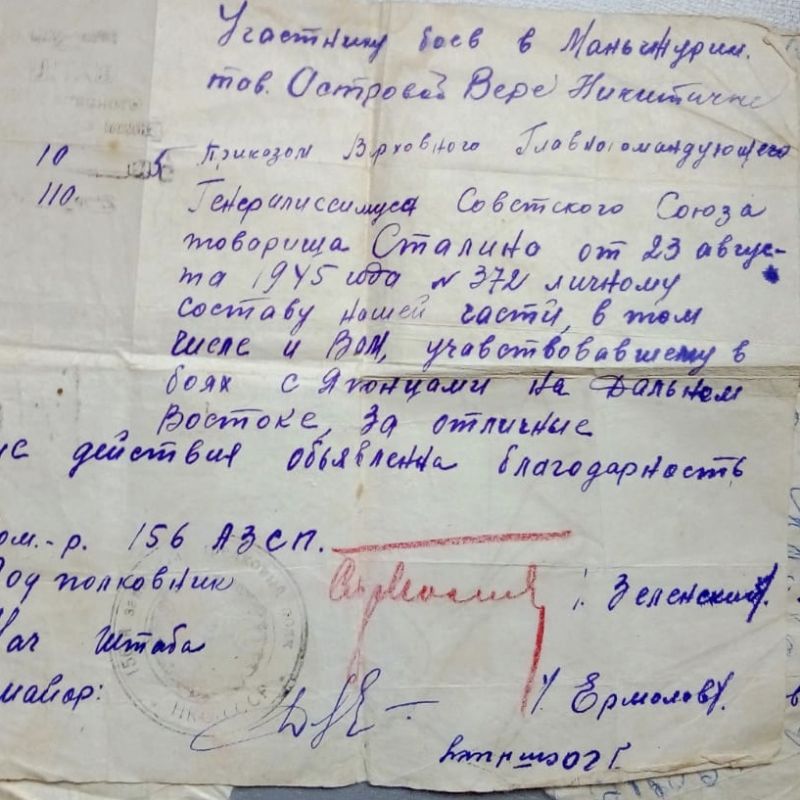 Участнику боев в Маньчжурии.
тов. Островой Вере Никитичне
10 Приказом Врховного Главнокомандующего
110. Генералиссимуса Советского Союза
товарища Сталина от 23 авгус-
та 1945 года № 372 личному
составу нашей части, в том
числе и Вам, учавствовавшему в
боях с Японцами на Дальнем
Востоке, за отличные
действия обьявленна благодарность
ом.-р. 156 АЗСП.
Под полковник /. Зеленский/.
Нач штаба
майор: / Ермолов/.